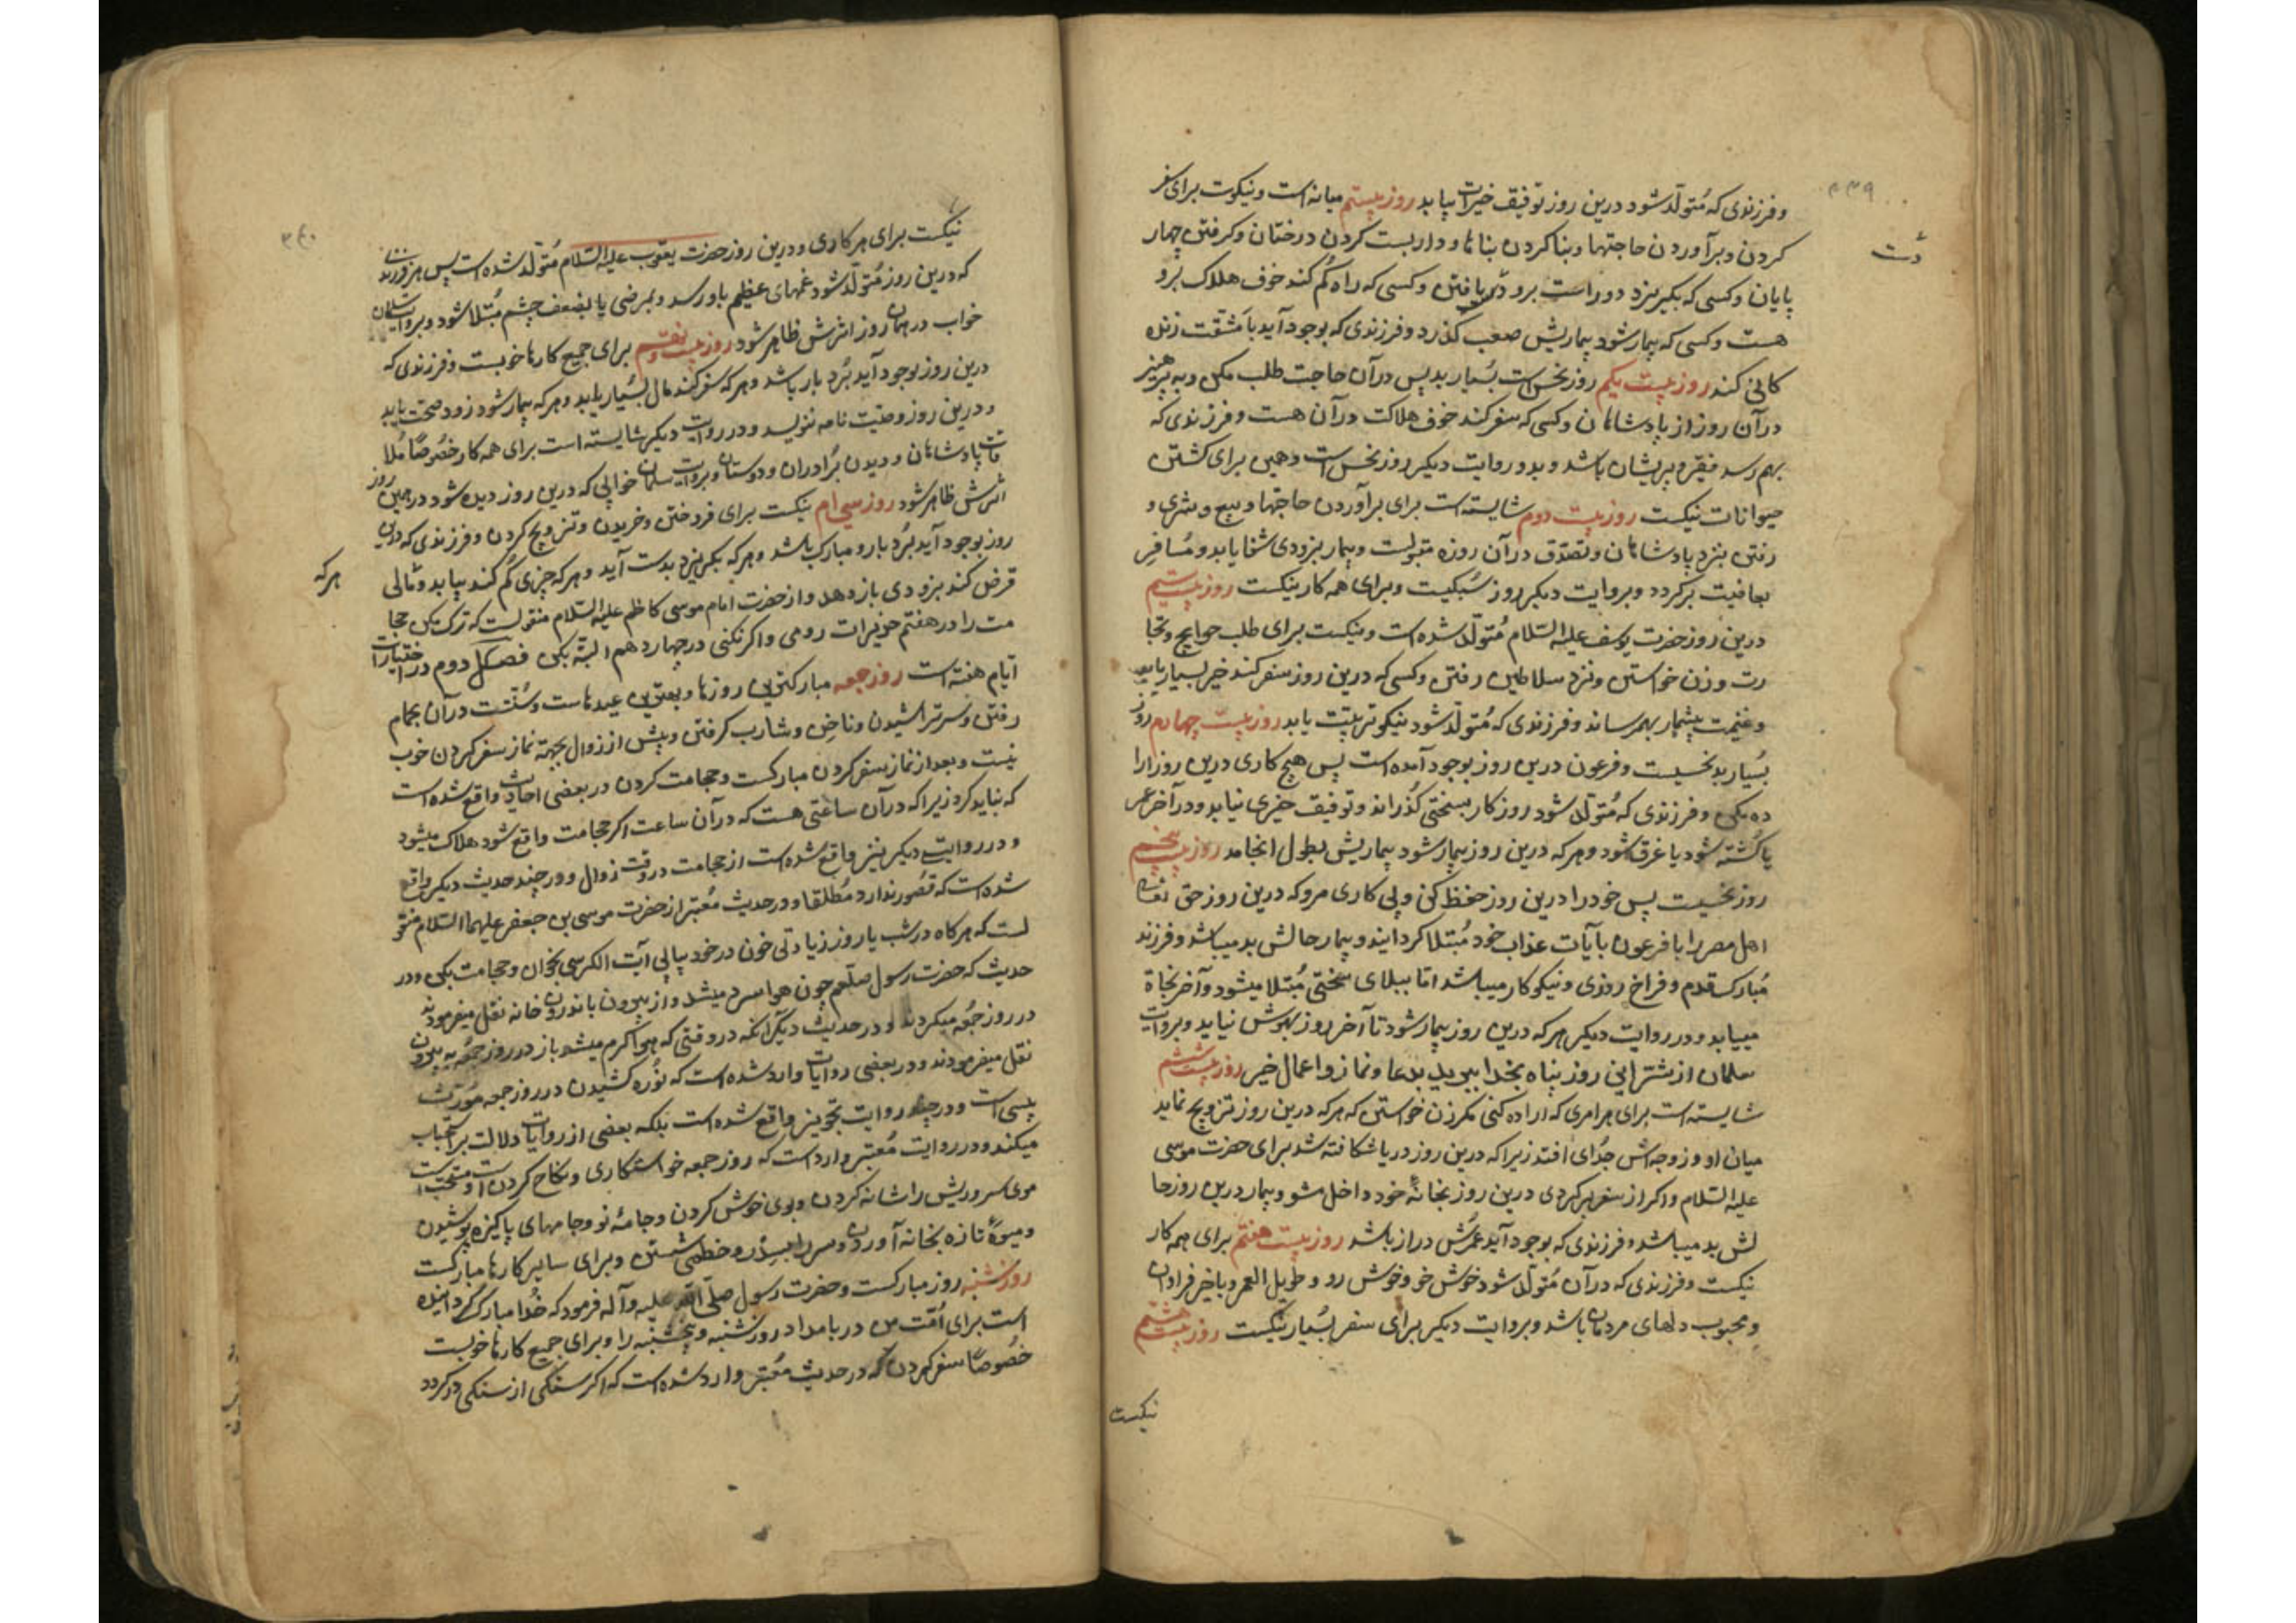 ۳۳۹
و فرزندی که مُتولّد شود درین روز توفیق خیرات بیابد روز بیستم میانه است و نیکوت برای سفر
کردن و برآوردن حاجتها و بنا کردن بناها و داربست کردن درختان و کرفتن چهار
پایان و کسی که بکیریزد دور است برو دست یافتن و کسی که راه کم کند خوف هلاک برو
هست و کسی که بیمار شود بیماریش صعب کذرد و فرزندی که بوجود آید با مشقّت زنده
کانی کند روز بیست یکم روز نحس است بُسیار بد پس درآن حاجت طلب مکن و به پرهیز
درآن روز از پادشاهان و کسی که سفر کند خوف هلاکت درآن هست و فرزندی که
بهم رسد فقیر و پریشان باشد و بدو روایت دیکر روز نحس است و همین برای کشتن
حیوانات نیکست روز بیست دوم شایسته است برای برآوردن حاجتها و بیع و شری و
رفتن بنزد پادشاهان و تصدّق درآن روزه مقبولست و بیمار بزودی شفا یابد و مُسافر
بعافیت برکردد و بروایت دیکر روز سُبکیت و برای همه کار نیکست روز بیست سیّم
درین روز حضرت یوسف علیه السّلام مُتولّد شده است و نیکست برای طلب حوایج و تجا
رت و زن خواستن و نزد سلاطین رفتن و کسی که درین روز سفر کند خیر بسیار یابد
و غنیمت بیشمار بهم رساند و فرزندی که مُتولّد شود نیکو تربیّت یابد روز بیست چهارم روز
بُسیار بد نحسیست و فرعون درین روز بوجود آمده است پس هیچ کاری درین روز ارا
ده مکن و فرزندی که مُتولّد شود روزکار بسختی کُذراند و توفیق خیری نیابد و درآخر عمر
یا کُشته شود یا غرق شود و هرکه درین روز بیمار شود بیماریش بطول انجامد روز بیست پنجم
روز نحسیست پس خود را درین روز حفظ کن و پی کاری مرو که درین روز حق تعالی
اهل مصر را با فرعون بآیات عذاب خود مُبتلا کردانید و بیمار حالش بد میباشد و فرزند
مُبارک قدم و فراخ روزی و نیکوکار میباشد امّا ببلای سختی مُبتلا میشود و آخر نجاة
مییابد و در روایت دیکر هرکه درین روز بیمار شود تا آخر روز بهوش نیاید و بروایت
سلمان از شرّ این روز پناه بخدا ببرید بدعا و نماز و اعمال خیر روز بیست ششم
شایسته است برای هر امری که اراده کنی مکر زن خواستن که هرکه درین روز تزویج نماید
میان او و زوجه اش جُدای افتد زیرا که درین روز دریا شکافته شد برای حضرت موسی
علیه السّلام و اکر از سفر برکردی درین روز بخانهٔ خود داخل مشو و بیمار درین روز حا
لش بد میباشد و فرزندی که بوجود آید عُمرش دراز باشد روز بیست هفتم برای همه کار
نیکست و فرزندی که درآن مُتولّد شود خوش خو و خوش رو و طویل العمر و با خیر فراوان
و محبوب دلهای مردمان باشد و بروایت دیکر برای سفر بُسیار نیکست روز بیست هشتم
نیکست
۳۴۰
نیکست برای هر کاری و درین روز حضرت یعقوب علیه السّلام مُتولّد شده است پس هر فرزند
که درین روز مُتولّد شود غمهای عظیم باو رسد و بمرضی یا بضعف چشم مُبتلا شود و بروایت سلمان
خواب در همان روز اثرش ظاهر شود روز بیست و نهم برای جمیع کارها خوبست و فرزندی که
درین روز بوجود آید بُردبار باشد و هرکه سفر کند مال بسُیار یابد و هرکه بیمار شود زود صحّت یابد
و درین روز وصیّت نامه ننویسد و در روایت دیکر شایسته است برای همه کار خصُوصًا مُلا
قات پادشاهان و دیدن بُرادران و دوستان و بروایت سلمان خوابی که درین روز دیده شود در همین روز
اثرش ظاهر شود روز سی ام نیکست برای فروختن و خریدن و تزویج کردن و فرزندی که درین
روز بوجود آید بُردبار و مبارک باشد و هرکه بکریزد بدست آید و هرکه چیزی کُم کند بیابد و مالی
هرکه
قرض کند بزودی باز دهد و از حضرت امام موسی کاظم علیه السّلام منقولست که ترک مکن حجا
مت را در هفتم حزیران رومی و اکر نکنی در چهاردهم البتّه بکن فصل دوم در اختیارات
ایّام هفته است روز جمعه مبارکترین روزها و بهترین عیدهاست و سُنّتست درآن بحمّام
رفتن و سر تراشیدن و ناخن و شارب کرفتن و پیش از زوال بجهة نماز سفر کردن خوب
نیست و بعد از نماز سفر کردن مبارکست و حجامت کردن در بعضی احادیث واقع شده است
که نباید کرد زیرا که درآن ساعتی هست که درآن ساعت اکر حجامت واقع شود هلاک میشود
و در روایت دیکر نیز واقع شده است از حجامت در وقت زوال و در چند حدیث دیکر واقع
شده است که قصُور ندارد مُطلقا و در حدیث مُعتبر از حضرت موسی بن جعفر علیهما السّلام منقو
لست که هرکاه در شب یا روز زیادتی خون در خود بیابی آیت الکرسی بخوان و حجامت بکن و در
حدیث که حضرت رسول صلعم چون هوا سرد میشد و از بیرون باندرون خانه نقل میفرمودند
در روز جُمعه میکردند و در حدیث دیکر آنکه در وقتی که هوا کرم میشد باز در روز جمُعه به بیرون
نقل میفرمودند و در بعضی روایات وارد شده است که نُوره کشیدن در روز جمعه مورث
پیسی است و در چند روایت تجویز واقع شده است بلکه بعضی از روایات دلالت بر استحباب
میکند و در روایت مُعتبر وارد است که روز جمعه خواستکاری و نکاح کردن است و سنّت است
موی سر و ریش را شانه کردن و بوی خوش کردن و جامهٔ نو و جامهای پاکیزه پوشیدن
و میوهٔ تازه بخانه آوردن و سر را بسدر و خطمی شستن و برای سایر کارها مبارکست
روز شنبه روز مبارکست و حضرت رسول صلّی الله علیه و آله فرمود که خُدا مبارک کردانیده
است برای اُمّت من در بامداد روز شنبه و پنجشنبه را و برای جمیع کارها خوبست
خصُوصًا سفر کردن که در حدیث مُعتبر وارد شده است که اکر سنکی از سنکی دور کردد